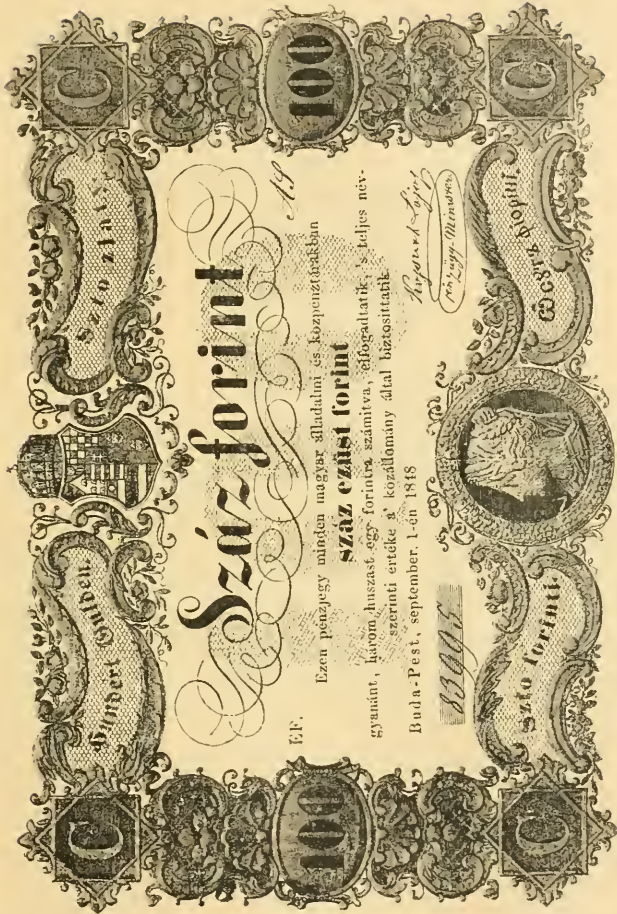 C
C
Hundert Gulden.
Szto zlati.
100
100
Száz forint
EF.
Ezen pénzjegy minden magyar álladalmi és közpénztárakban
száz ezüst forint
gyanánt, három huszast egy forintra számítva, elfogadtatik, 's teljes név-
szerinti értéke a' közállomány által biztosíttatik
Buda-Pest, september. 1-én 1848
83005
Kossuth Lajos
pénzügyi Minister
Szto forinti.
C
C